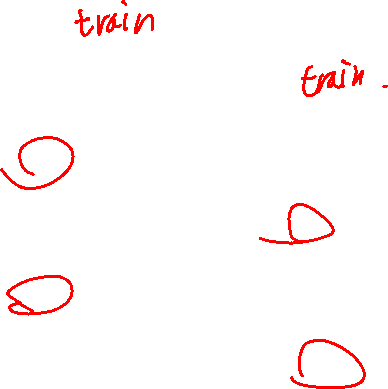 train
train.